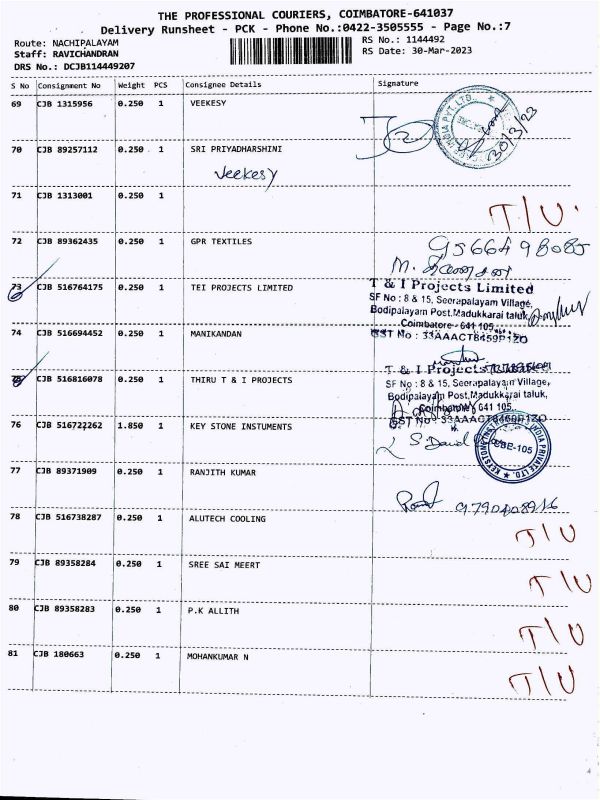 THE PROFESSIONAL COURIERS, COIMBATORE-641037
Delivery Runsheet - PCK - Phone No.:0422-3505555 - Page No.:7
Route: NACHIPALAYAM
RS No.: 1144492
Staff: RAVICHANDRAN
RS Date: 30-Mar-2023
DRS No.: DCJB114449207
S No Consignment No Weight PCS Consignee Details Signature
69 CJB 1315956 0.250 1 VEEKESY
30/3/23
70 CJB 89257112 0.250 1 SRI PRIYADHARSHINI
Veekesy
71 CJB 1313001 0.250 1
T/U
72 CJB 89362435 0.250 1 GPR TEXTILES
9566498085
73 CJB 516764175 0.250 1 TEI PROJECTS LIMITED
T & I Projects Limited
SF No : 8 & 15, Seerapalayam Village,
Bodipalayam Post, Madukkarai taluk,
Coimbatore - 641 105
GST No : 33AAACT8459P1ZO
74 CJB 516694452 0.250 1 MANIKANDAN
75 CJB 516816078 0.250 1 THIRU T & I PROJECTS
T & I Projects
SF No : 8 & 15, Seerapalayam Village,
Bodipalayam Post, Madukkarai taluk,
Coimbatore 641 105
GST No : 33AAACT8459P1ZO
76 CJB 516722262 1.850 1 KEY STONE INSTUMENTS
S David
CBE-105
77 CJB 89371909 0.250 1 RANJITH KUMAR
78 CJB 516738287 0.250 1 ALUTECH COOLING
T/U
79 CJB 89358284 0.250 1 SREE SAI MEERT
T/U
80 CJB 89358283 0.250 1 P.K ALLITH
T/U
81 CJB 180663 0.250 1 MOHANKUMAR N
T/U